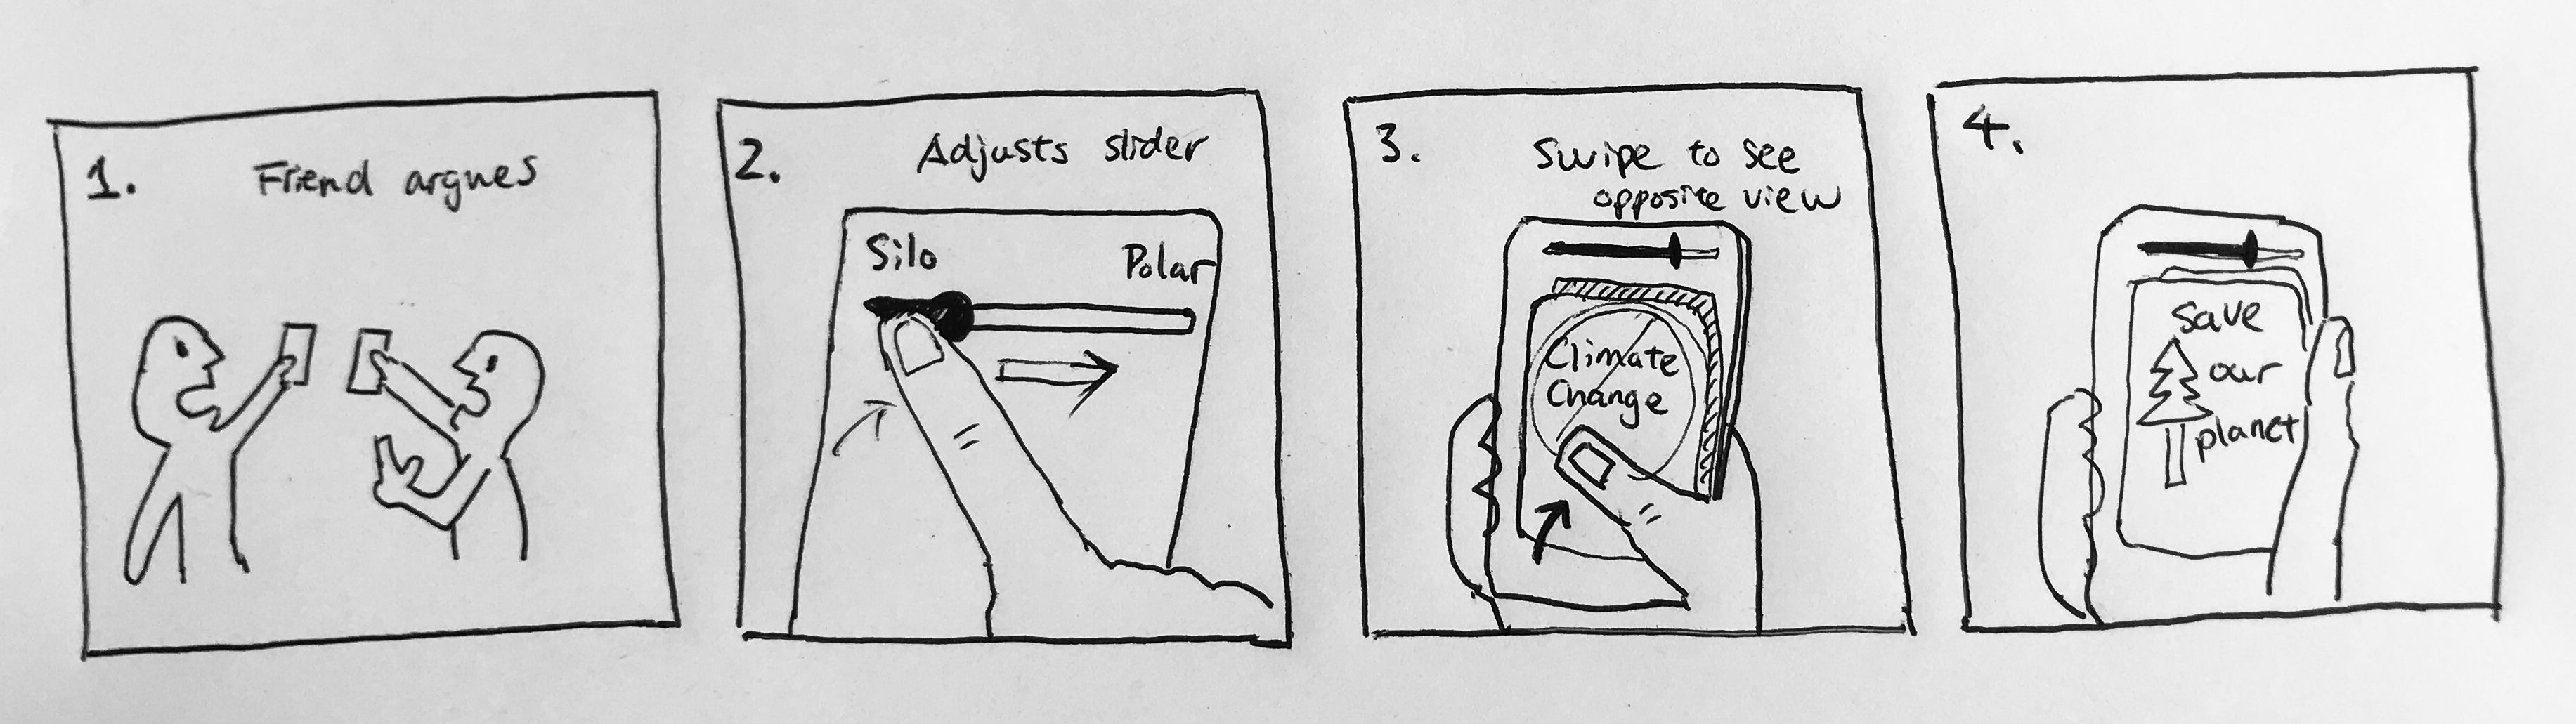 1.
Friend argues
2.
Adjusts slider
Silo
Polar
3.
Swipe to see
opposite view
Climate
Change
4.
Save
our
planet